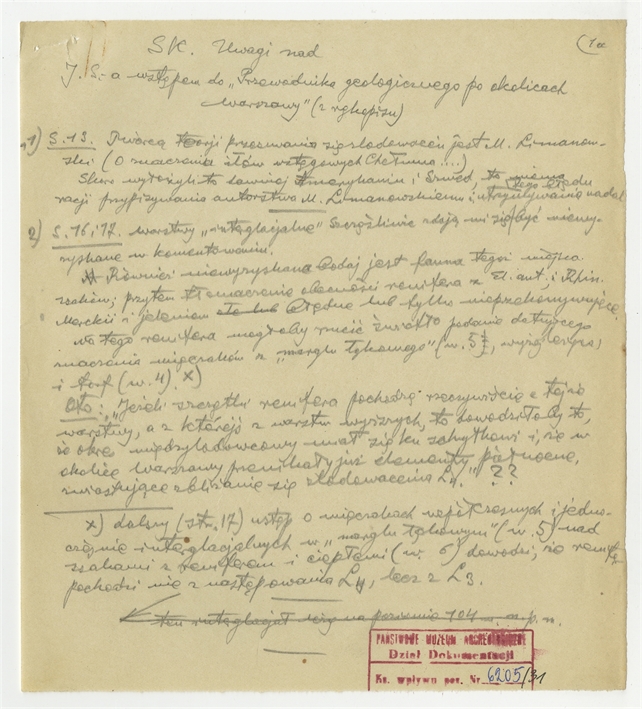 (1a
SK. Uwagi nad
J. S.-a wstępem do „Przewodnika geologicznego po okolicach
Warszawy" (z rękopisu)
1) S. 13. Twórcą teorji przesuwania się zlodowaceń jest M. Limanow-
ski (O znaczeniu iłów wstęgowych Chełmna....)
Skoro wyłożyli to dawniej Amerykanin i Szwed, to niema
racji przypisywania autorstwa M. Limanowskiemu i utrzymywania nadal
tego błędu
2) S. 16 i 17. warstwy „interglacjalne" Szczęśliwic zdają mi się być niewy-
zyskane w komentowaniu.
Również niewyzyskana bodaj jest fauna tegoż miejsca
ssaków; przytem tłomaczenie obecności renifera z El. ant. i Rhin.
Merckii i jeleniem albo lub błędne lub tylko nieprzekonywujące.
Na tego renifera mogłoby rzucić światło podanie dotyczącego
znaczenia mięczaków z „marglu łąkowego" (w. 5
i torf (w. 4). x)
Oto: „Jeżeli szczątki renifera pochodzą rzeczywiście z tejże
warstwy, a z którejś z warstw wyższych, to dowodziłoby to,
że okres międzylodowcowy miał się ku schyłkowi i, że w
okolicę Warszawy przenikały już elementy północne,
zwiastujące zbliżanie się zlodowacenia L4." ??
x) dalszy (str. 17) ustęp o mięczakach współczesnych i jedno-
cześnie interglacjalnych w „marglu łąkowym" (w. 5) nad
ssakami z reniferem i ciepłemi (w. 6) dowodzi, że renifer
pochodzi nie z następowania L4, lecz z L3.
ten interglacjał leży na poziomie 104 m. n. p. m.
PAŃSTWOWE MUZEUM ARCHEOLOGICZNE
Dział Dokumentacji
Ks. wpływu poz. Nr 6205/31